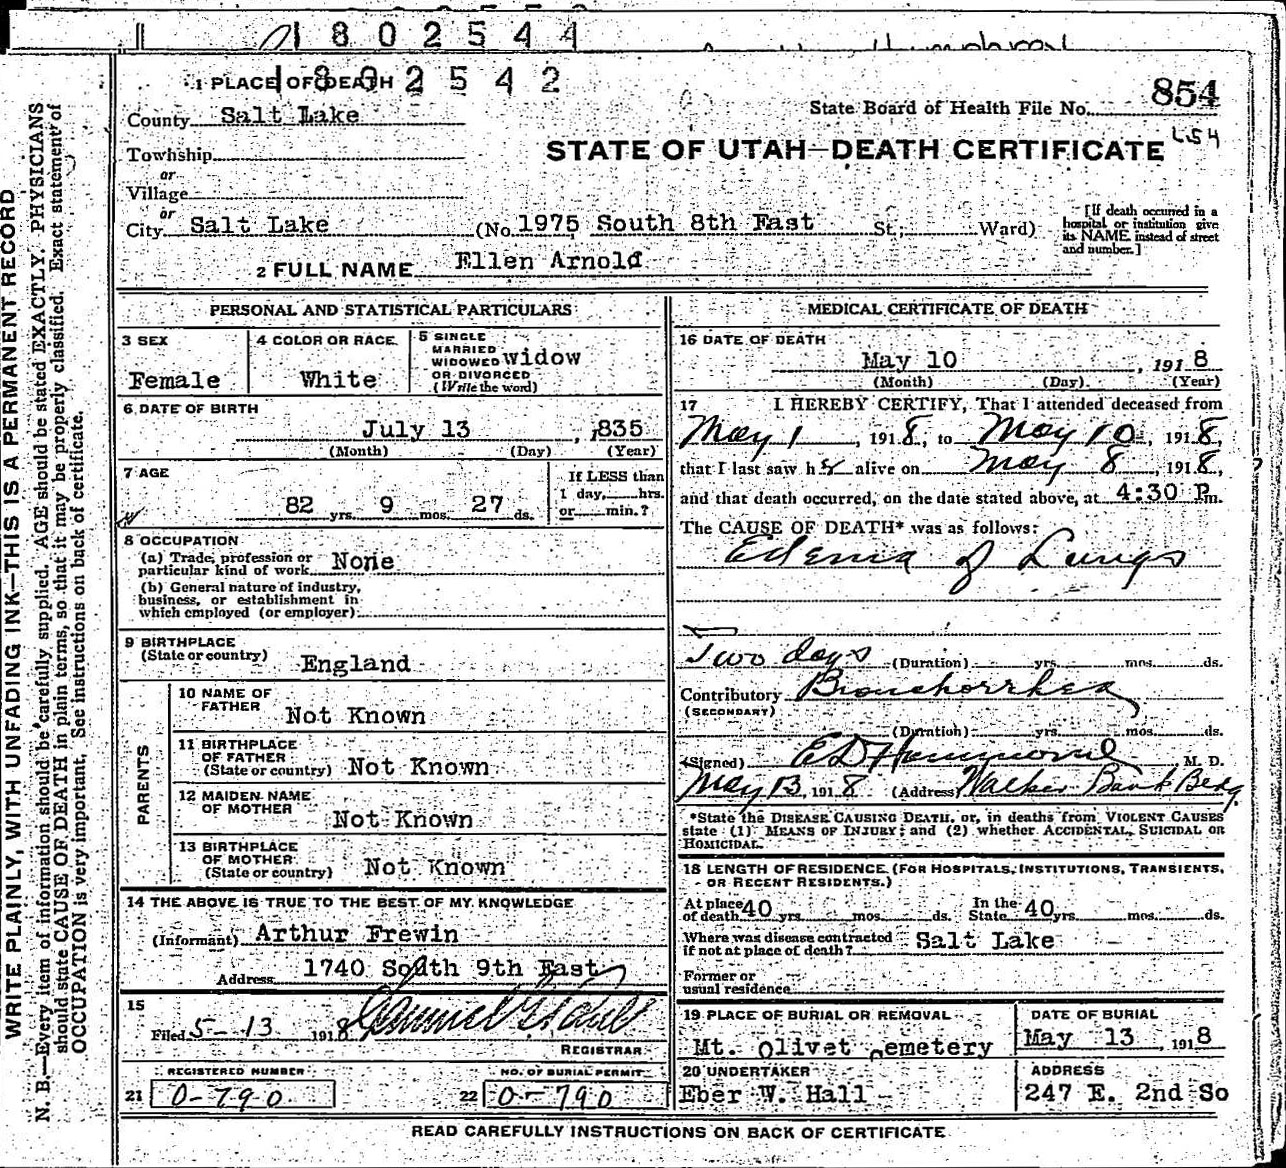 1802544
1802542
1 PLACE OF DEATH
State Board of Health File No. 854
County Salt Lake
STATE OF UTAH—DEATH CERTIFICATE
Township
or
Village
or
City Salt Lake (No. 1975 South 8th East St.; Ward)
[If death occurred in a
hospital or institution give
its NAME instead of street
and number.]
2 FULL NAME Ellen Arnold
WRITE PLAINLY, WITH UNFADING INK—THIS IS A PERMANENT RECORD
N. B.—Every item of information should be carefully supplied. AGE should be stated EXACTLY. PHYSICIANS
should state CAUSE OF DEATH in plain terms, so that it may be properly classified. Exact statement of
OCCUPATION is very important. See instructions on back of certificate.
PERSONAL AND STATISTICAL PARTICULARS
3 SEX
Female
4 COLOR OR RACE
White
5 SINGLE
MARRIED
WIDOWED widow
OR DIVORCED
(Write the word)
6 DATE OF BIRTH
July 13, 1835
(Month) (Day) (Year)
7 AGE
82 yrs. 9 mos. 27 ds.
If LESS than
1 day, hrs.
or min.?
8 OCCUPATION
(a) Trade, profession or
particular kind of work None
(b) General nature of industry,
business, or establishment in
which employed (or employer)
9 BIRTHPLACE
(State or country) England
PARENTS
10 NAME OF
FATHER Not Known
11 BIRTHPLACE
OF FATHER
(State or country) Not Known
12 MAIDEN NAME
OF MOTHER Not Known
13 BIRTHPLACE
OF MOTHER
(State or country) Not Known
14 THE ABOVE IS TRUE TO THE BEST OF MY KNOWLEDGE
(Informant) Arthur Frewin
Address 1740 South 9th East
15
Filed 5-13 1918
REGISTRAR
REGISTERED NUMBER
21 0-790
NO. OF BURIAL PERMIT
22 0-790
MEDICAL CERTIFICATE OF DEATH
16 DATE OF DEATH
May 10, 1918
(Month) (Day) (Year)
17 I HEREBY CERTIFY, That I attended deceased from
May 1, 1918, to May 10, 1918,
that I last saw her alive on May 8, 1918,
and that death occurred, on the date stated above, at 4:30 P.m.
The CAUSE OF DEATH* was as follows:
Edema of Lungs
Two days (Duration) yrs. mos. ds.
Contributory Bronchorrhea
(SECONDARY)
(Duration) yrs. mos. ds.
(Signed) E D Hammond M. D.
May 13, 1918 (Address) Walker Bank Bldg.
*State the DISEASE CAUSING DEATH, or, in deaths from VIOLENT CAUSES
state (1) MEANS OF INJURY; and (2) whether ACCIDENTAL, SUICIDAL OR
HOMICIDAL.
18 LENGTH OF RESIDENCE (FOR HOSPITALS, INSTITUTIONS, TRANSIENTS,
OR RECENT RESIDENTS.)
At place
of death 40 yrs. mos. ds.
In the
State 40 yrs. mos. ds.
Where was disease contracted
if not at place of death? Salt Lake
Former or
usual residence
19 PLACE OF BURIAL OR REMOVAL
Mt. Olivet Cemetery
DATE OF BURIAL
May 13, 1918
20 UNDERTAKER
Eber W. Hall
ADDRESS
247 E. 2nd So
READ CAREFULLY INSTRUCTIONS ON BACK OF CERTIFICATE